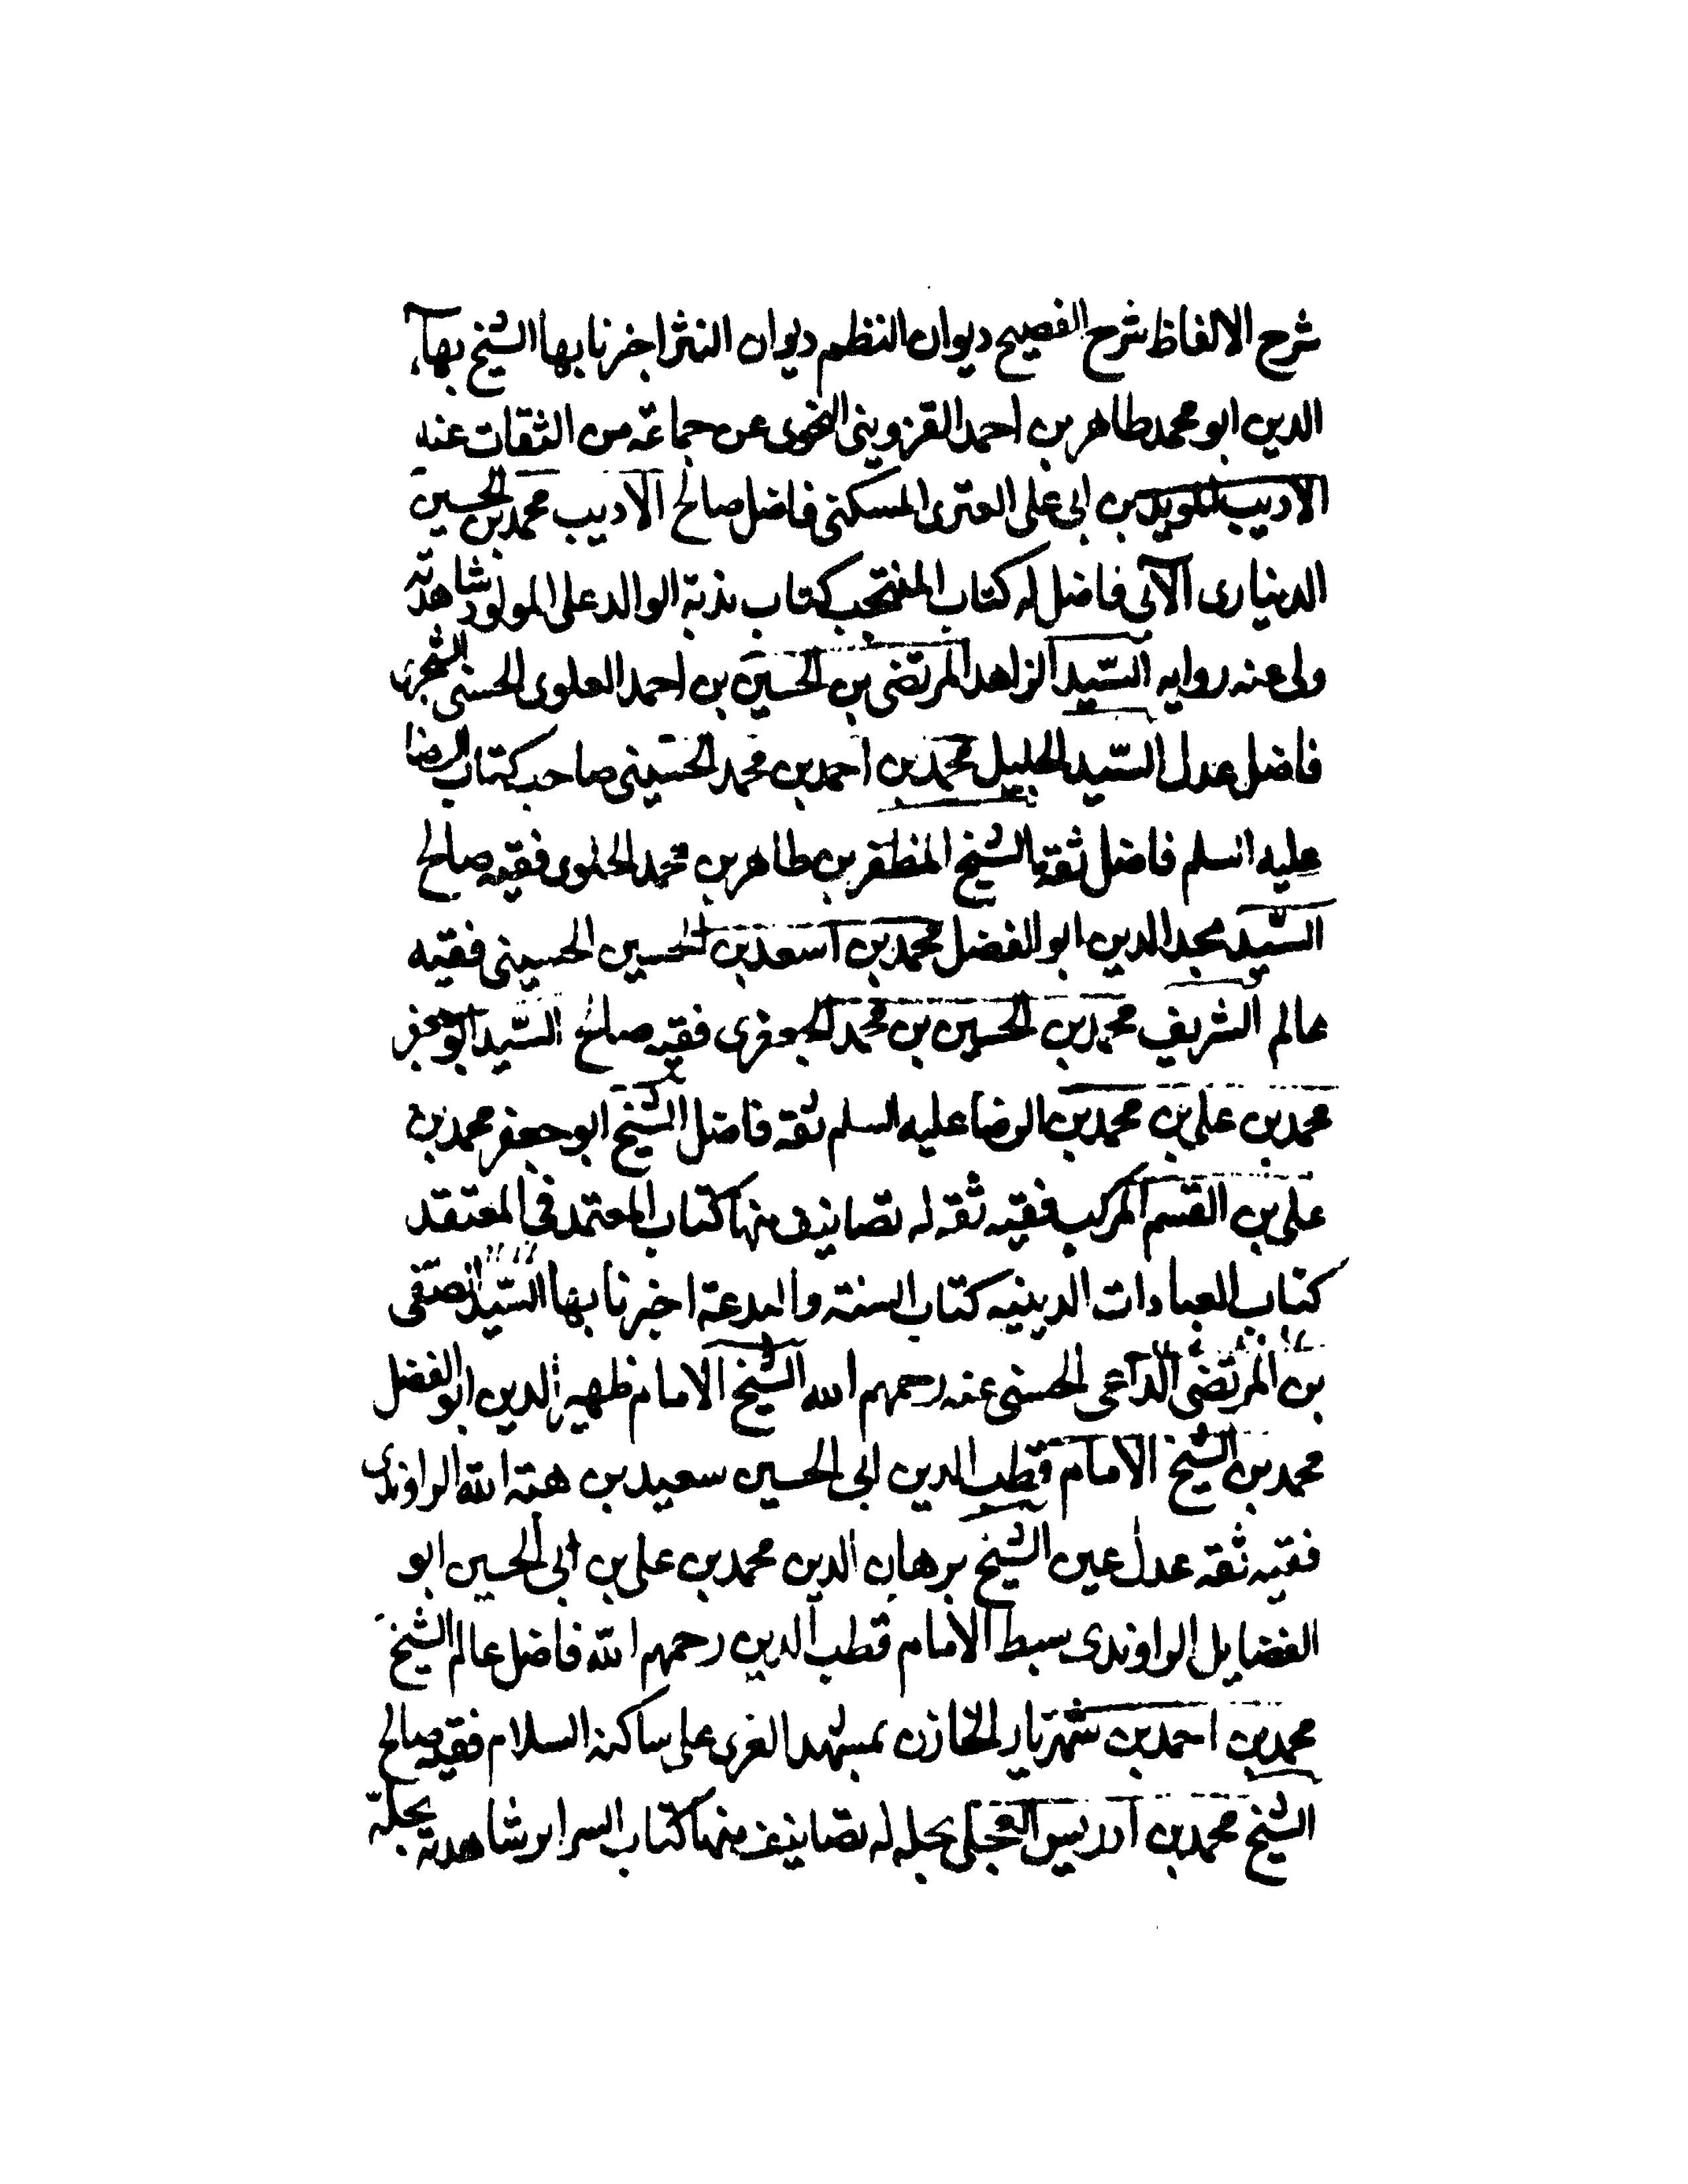 شرح الالفاظ شرح الفصيح ديوان النظم ديوان النثر اخبرنا بها الشيخ بهآء
الدين ابو محمد طاهر بن احمد القزويني النحوى عن جماعة من الثقات عنه
الاديب المويد بن ابى على المسكنى فاضل صالح الاديب محمد بن الحسين
الدينارى الآبى فاضل له كتاب المنتحب كتاب ندبة الوالد على المولود شاهدته
ولى عنه روايه السّيد الزاهد المرتضى بن الحسين بن احمد العلوى الحسنى الشجرى
فاضل عدل السّيد الجليل محمد بن احمد بن محمد الحسينى صاحب كتاب الرضا
عليه السلم فاضل ثقة الشيخ المظفر بن طاهر بن محمد الحلوى فقيه صالح
السّيد مجد الدين ابو الفضل محمد بن اسعد بن الحسين الحسينى فقيه
عالم الشريف محمد بن الحسين بن محمد الجعفرى فقيه صالح السّيد ابو جعفر
محمد بن على بن محمد بن الرضا عليه السلم ثقة فاضل الشيخ ابو جعفر محمد بن
على بن القسم المركب فقيه ثقة له تصانيف منها كتاب المعتمد فى المعتقد
كتاب العبادات الدينيه كتاب السنة والبدعة اخبرنا بها السّيد
بن المرتضى الدآعى الحسنى عنه رحمهم الله الشيخ الامام ظهير الدين ابو الفضل
محمد بن الشيخ الامام قطب الدين ابى الحسين سعيد بن هبة الله الراوندى
فقيه ثقه عدل عين الشيخ برهان الدين محمد بن على بن ابى الحسين ابو
الفضايل الراوندى سبط الامام قطب الدين رحمهم الله فاضل عالم الشيخ
محمد بن احمد بن شهريار الخازن بمشهد الغرى على ساكنه السلام فقيه صالح
الشيخ محمد بن ادريس العجلى بحله له تصانيف منها كتاب السراير شاهدته بحلّة